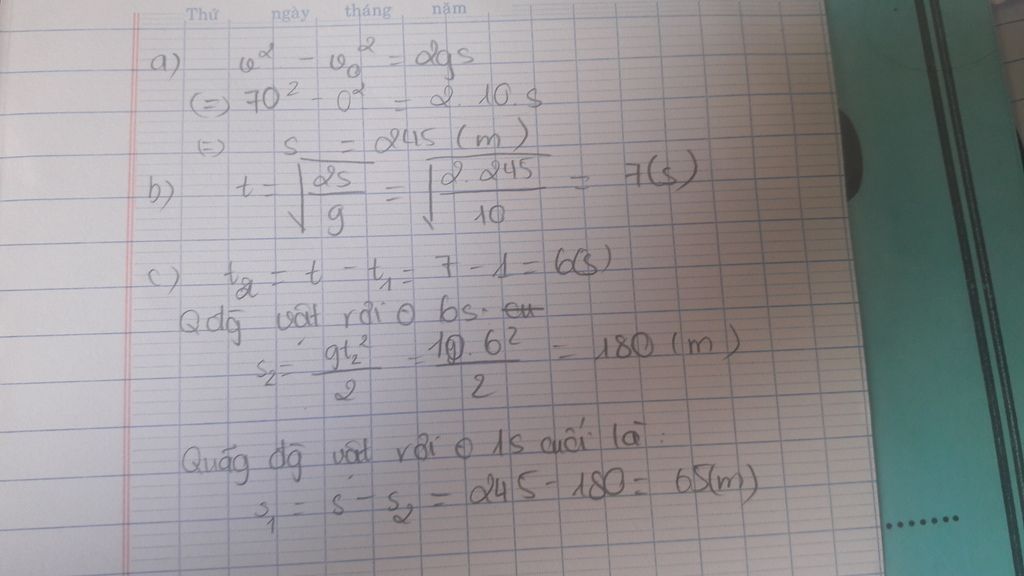 Thứ ngày tháng năm
a) v² - v₀² = 2gs
(=) 70² - 0² = 2.10.s
(=) s = 245 (m)
b) t = √(2s/g) = √(2.245/10) = 7(s)
c) t₂ = t - t₁ = 7 - 1 = 6(s)
Qđg vật rơi ở 6s
s₂ = gt₂²/2 = 10.6²/2 = 180 (m)
Quãg đg vật rơi ở 1s cuối là:
s₁ = s - s₂ = 245 - 180 = 65(m)